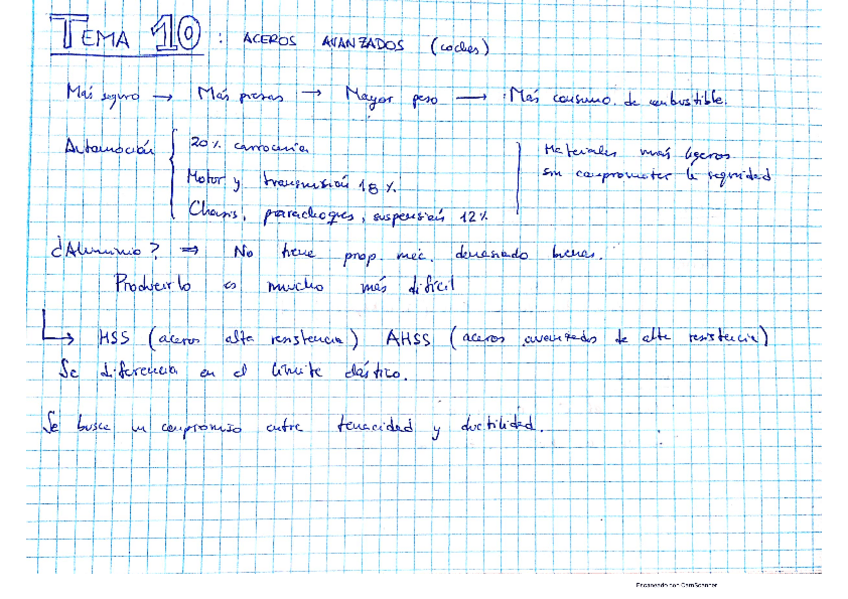 TEMA 10 : ACEROS AVANZADOS (coches)
Más seguro → Más piezas → Mayor peso → Más consumo de combustible.
Automoción { 20% carrocería
Motor y transmisión 18%
Chasis, parachoques, suspensión 12%
Materiales más ligeros
sin comprometer la seguridad
¿Aluminio? ⇒ No tiene prop. mec. demasiado buenas.
Producirlo es mucho más difícil
↳ HSS (aceros alta resistencia) AHSS (aceros avanzados de alta resistencia)
Se diferencia en el límite elástico.
Se busca un compromiso entre tenacidad y ductilidad.
Escaneado con CamScanner